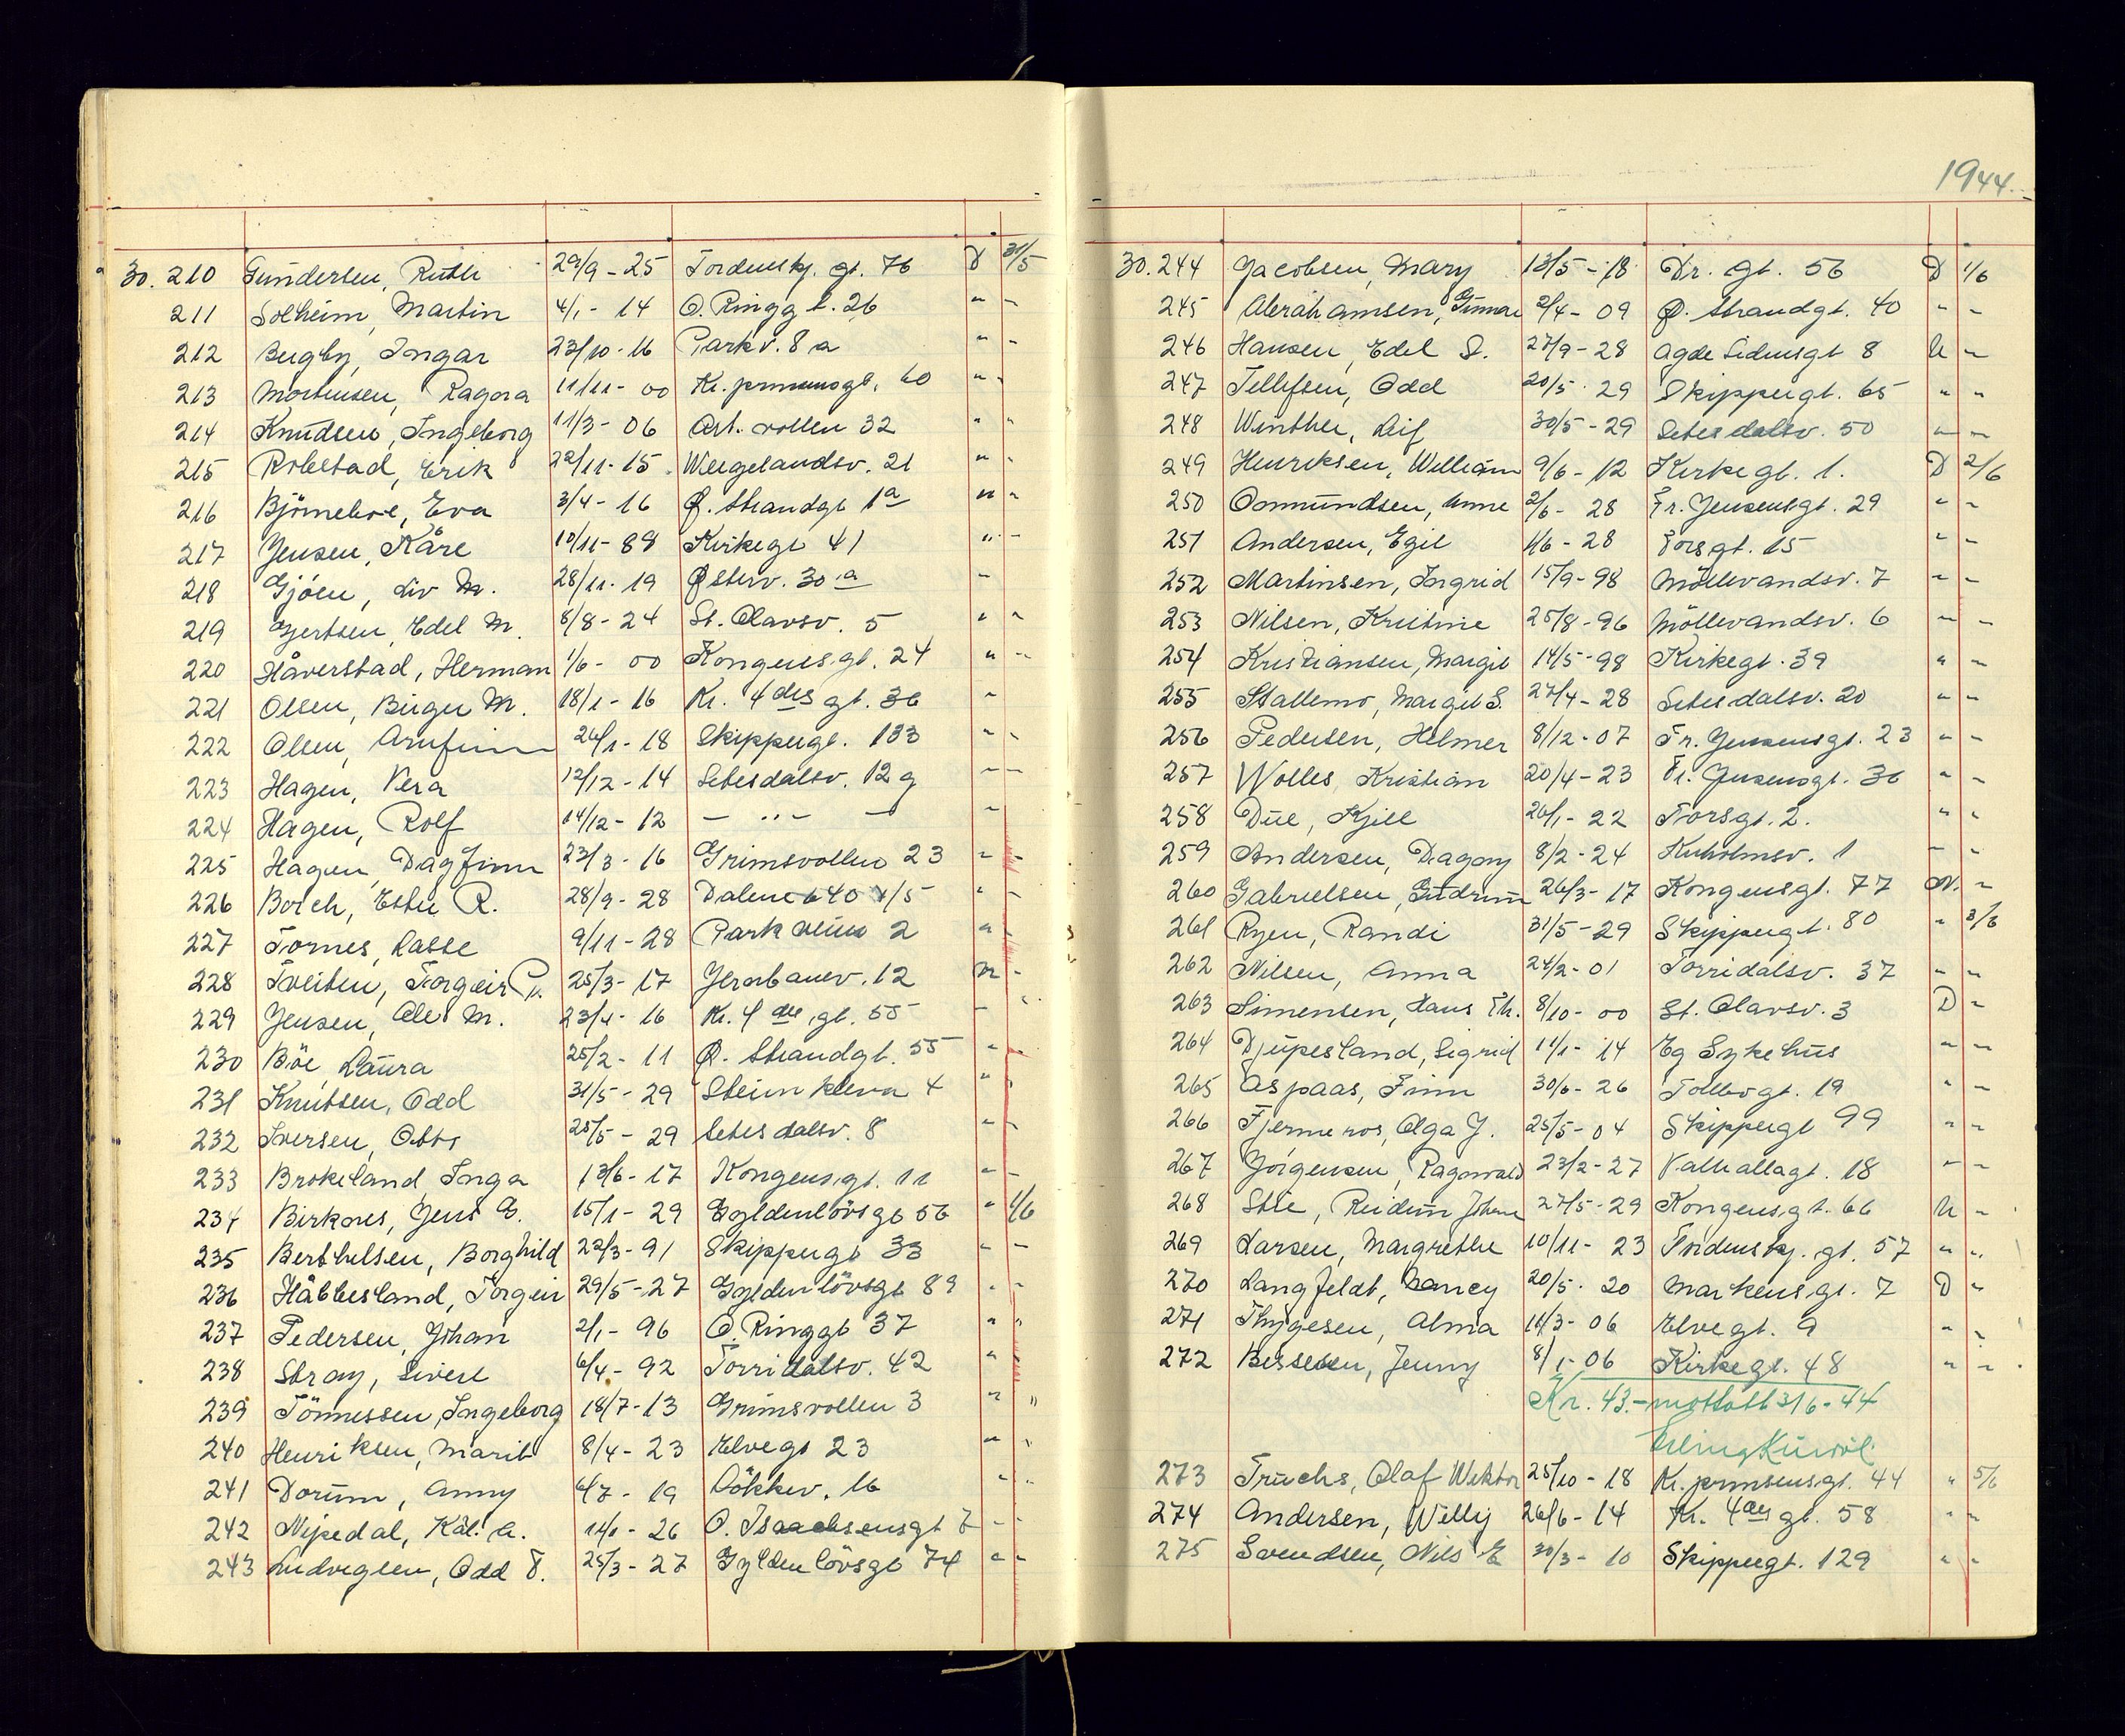 30.210 Gundersen, Ruth 29/9-25 Tordenskj. gt. 76 D 31/5
211 Solheim, Martin 4/1-14 O. Ringgt. 26 " "
212 Bugby, Ingar 23/10-16 Parkv. 8 a " "
213 Mortensen, Ragna 11/11-00 Kr. prinsensgt. 60 " "
214 Knudsen, Ingeborg 11/3-06 Art. vollen 32 " "
215 Robstad, Erik 22/11-15 Wergelandsv. 21 " "
216 Björneboe, Eva 3/4-16 Ø. Strandgt 1a " "
217 Jensen, Kåre 10/11-89 Kirkegt 41 " "
218 Gjöen, Liv M. 28/11-19 Østerv. 30 a "
219 Gjertsen, Edel M. 8/8-24 St. Olavsv. 5 " "
220 Håverstad, Herman 1/6-00 Kongensgt. 24 " "
221 Olsen, Birger M. 18/1-16 Kr. 4des gt. 36 "
222 Olsen, Arnfinn 26/1-18 Skippergt. 133 " "
223 Hagen, Vera 12/12-14 Setesdalsv. 12 g " "
224 Hagen, Rolf 14/12-12 — " — — "
225 Hagen, Dagfinn 23/3-16 Grimsvollen 23 " "
226 Borch, Ester R. 28/9-28 Dalene 640 4/5 " "
227 Tornes, Lasse 9/11-28 Parkveien 2 " "
228 Tveiten, Torgeir P. 25/3-17 Jernbanev. 12 N "
229 Jensen, Ole M. 23/4-16 Kr. 4des gt. 55 " "
230 Böe, Laura 25/2-11 Ø. Strandgt. 55 " "
231 Knutsen, Odd 31/5-29 Steinkleva 4 " "
232 Iversen, Otto 25/5-29 Setesdalsv. 8 " "
233 Brokeland, Inga 13/6-17 Kongensgt. 11 " "
234 Birknes, Jens G. 15/1-29 Gyldenlövsgt 56 " 1/6
235 Berthelsen, Borghild 22/3-91 Skippergt 33 " "
236 Håbbesland, Torgeir 29/5-27 Gyldenlövsgt 89 " "
237 Pedersen, Johan 2/1-96 O. Ringgt 37 " "
238 Stray, Sivert 6/4-92 Torridalsv. 42 "
239 Tönnessen, Ingeborg 18/7-13 Grimsvollen 3 " "
240 Henriksen, Marit 8/4-23 Elvegt 23 " "
241 Dorum, Anny 6/7-19 Løkkev. 16 " "
242 Nipedal, Kal. A. 14/1-26 O. Isaachsensgt 7 " "
243 Ludvigsen, Odd T. 25/3-27 Gyldenlövsgt 74 " "
1944.
30.244 Jacobsen, Mary 13/5-18 Dr. gt. 56 D 1/6
245 Abrahamsen, Gunnar 2/4-09 Ø. Strandgt. 40 " "
246 Hansen, Edel S. 27/9-28 Agde Sidensgt 8 U "
247 Tellefsen, Odd 20/5-29 Skippergt. 65 " "
248 Winther, Leif 30/5-29 Setesdalsv. 50 " "
249 Henriksen, William 9/6-12 Kirkegt. 1. D 2/6
250 Osmundsen, Anne 2/6-28 Fr. Jensensgt. 29 " "
251 Andersen, Egil 1/6-28 Torsgt. 15 " "
252 Martinsen, Ingrid 15/9-98 Möllevandsv. 7 " "
253 Nilsen, Kristine 25/8-96 Möllevandsv. 6 " "
254 Kristiansen, Margit 14/5-98 Kirkegt. 39 " "
255 Stallemo, Margit S. 27/4-28 Setesdalsv. 20 " "
256 Pedersen, Helmer 8/12-07 Fr. Jensensgt. 23 " "
257 Wolles, Kristian 20/4-23 Fr. Jensensgt. 36 " "
258 Due, Kjell 26/1-22 Torsgt. 2. " "
259 Andersen, Dagny 8/2-24 Kuholmsv. 1 " "
260 Gabrielsen, Gudrun 26/3-17 Kongensgt. 77 N. "
261 Ryen, Randi 31/5-29 Skippergt. 80 " 3/6
262 Nilsen, Anna 24/2-01 Torridalsv. 37 " "
263 Simensen, Hans Th. 8/10-00 St. Olavsv. 3 D "
264 Djupesland, Sigrid 11/1-14 Eg Sykehus " "
265 Aspaas, Finn 30/6-26 Tollbogt. 19 " "
266 Fjermeros, Olga J. 25/5-04 Skippergt 99 " "
267 Jörgensen, Ragnvald 23/2-27 Valhallagt. 18 " "
268 Stie, Reidun Johanne 27/5-29 Kongensgt. 66 U "
269 Larsen, Margrethe 10/11-23 Tordenskj. gt. 57 " "
270 Langfeldt, Nancy 20/5-20 Markensgt. 7 D "
271 Thygesen, Alma 11/3-06 Elvegt. 9 " "
272 Bessesen, Jenny 8/1-06 Kirkegt. 48 " "
Kr. 43.- mottatt 3/6-44
Erling
273 Truchs, Olaf Wiktor 25/10-18 Kr. prinsensgt. 44 " 5/6
274 Andersen, Willy 26/6-14 Kr. 4des gt. 58 " "
275 Svendsen, Nils E 30/3-10 Skippergt. 129 " "